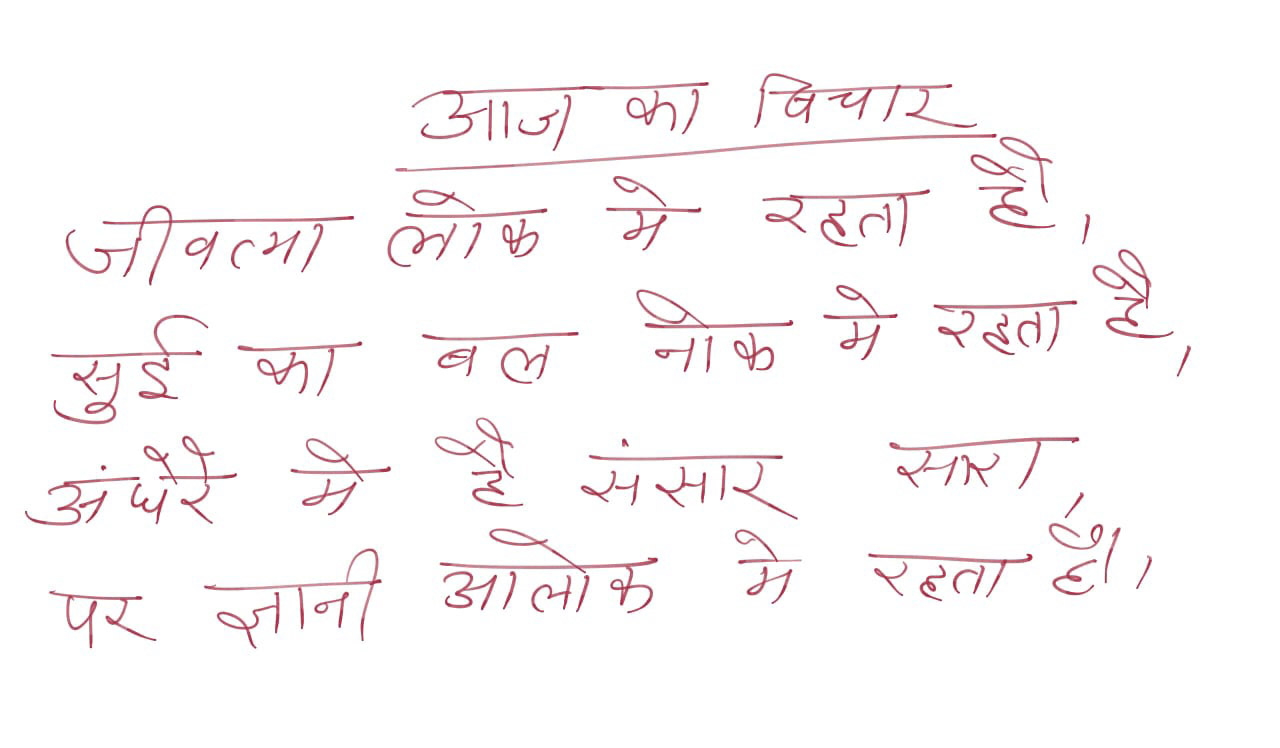 आज का विचार
जीवत्मा लोक मे रहता है,
सुई का बल नोक मे रहता है,
अंधेरे मे है संसार सारा,
पर ज्ञानी आलोक मे रहता है।